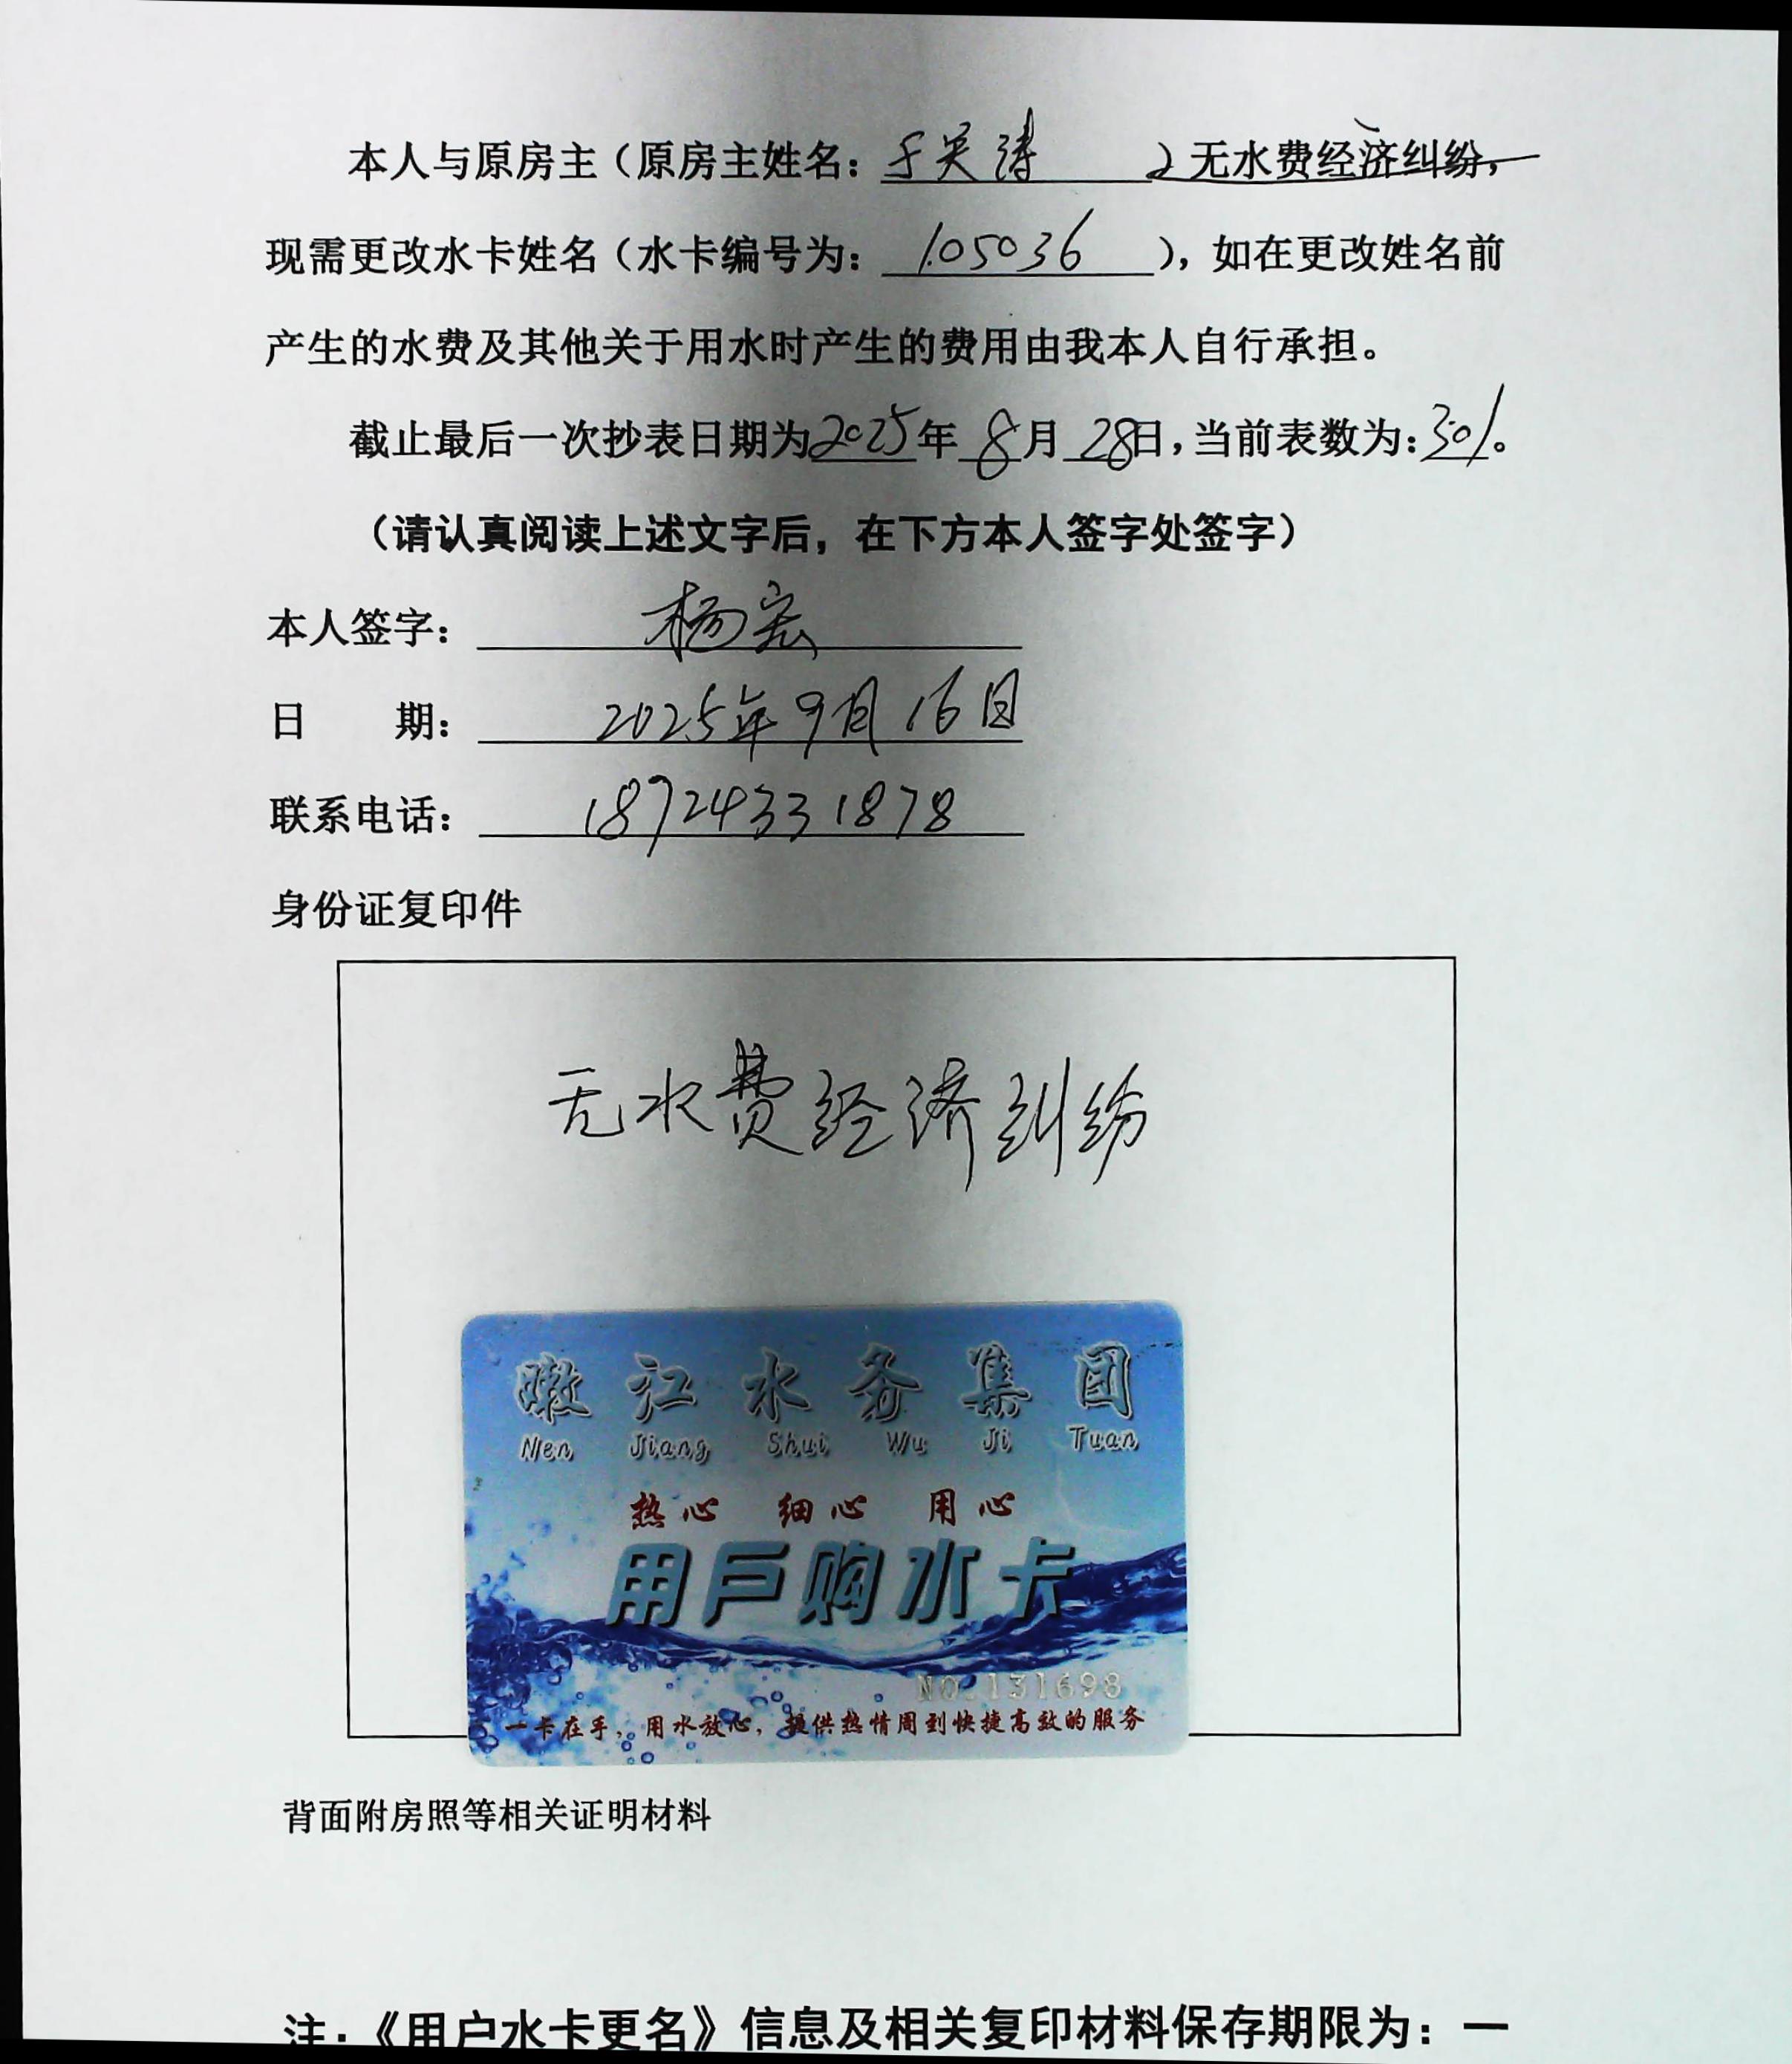 本人与原房主（原房主姓名：于英涛）无水费经济纠纷，
现需更改水卡姓名（水卡编号为：105036），如在更改姓名前
产生的水费及其他关于用水时产生的费用由我本人自行承担。
截止最后一次抄表日期为2025年8月28日，当前表数为：301。
（请认真阅读上述文字后，在下方本人签字处签字）
本人签字：杨宏
日 期：2025年9月16日
联系电话：18724331878
身份证复印件
无水费经济纠纷
嫩江水务集团
Nen Jiang Shui Wu Ji Tuan
热心 细心 用心
用户购水卡
NO.131698
一卡在手，用水放心，提供热情周到快捷高效的服务
背面附房照等相关证明材料
注：《用户水卡更名》信息及相关复印材料保存期限为：一